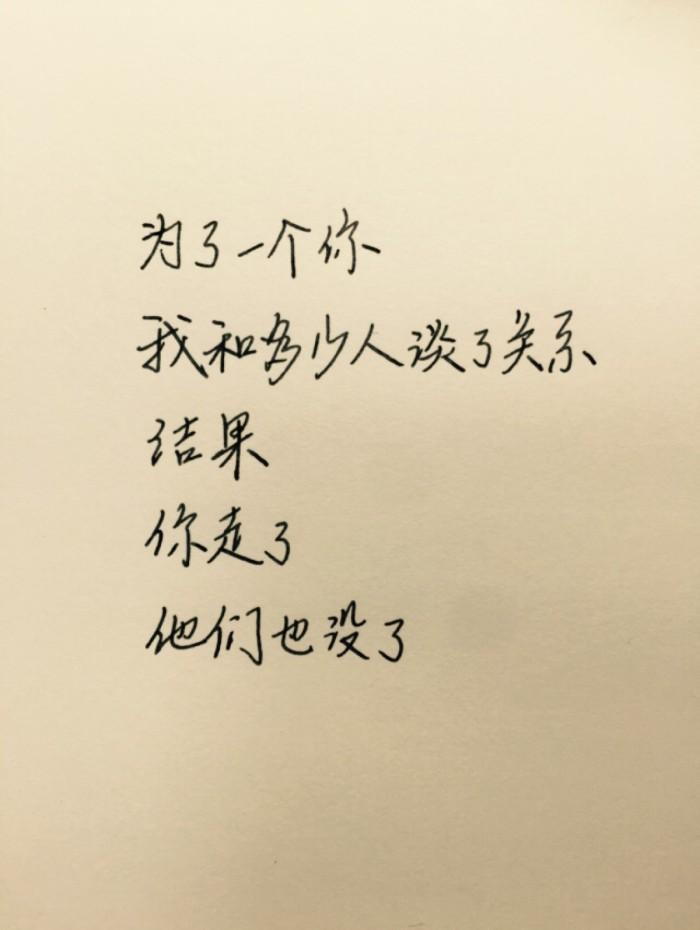 为了一个你
我和多少人谈了关系
结果
你走了
他们也没了